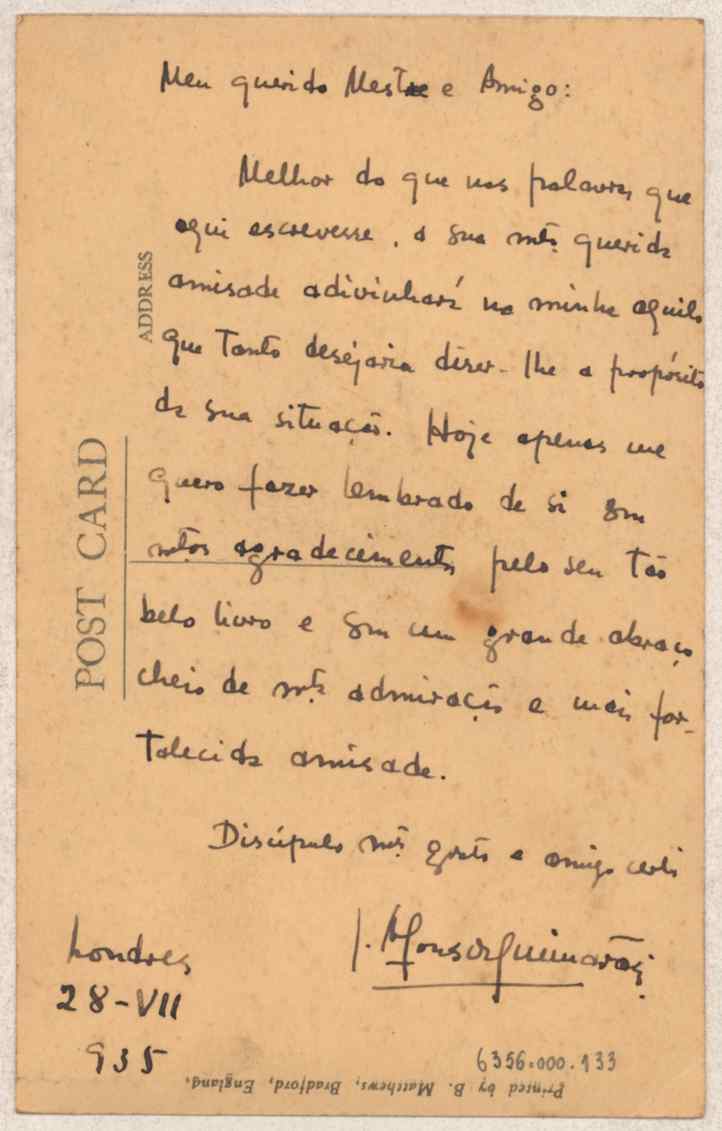 Meu querido Mestre e Amigo:
Melhor do que nas palavras que
aqui escrevesse, a sua mtº querida
amisade adivinhará na minha aquilo
que tanto desejaria diser-lhe a propósito
da sua situação. Hoje apenas me
quero fazer lembrado de si em
mtos agradecimentos pelo seu tão
belo livro e em um grande abraço
cheio de mtª admiração e mais for-
talecida amisade.
Discípulo mtº grato e amigo certo
J. Afonso Guimarães
Londres
28-VII
935
ADDRESS
POST CARD
6356.000.133
Printed by B. Matthews, Bradford, England.